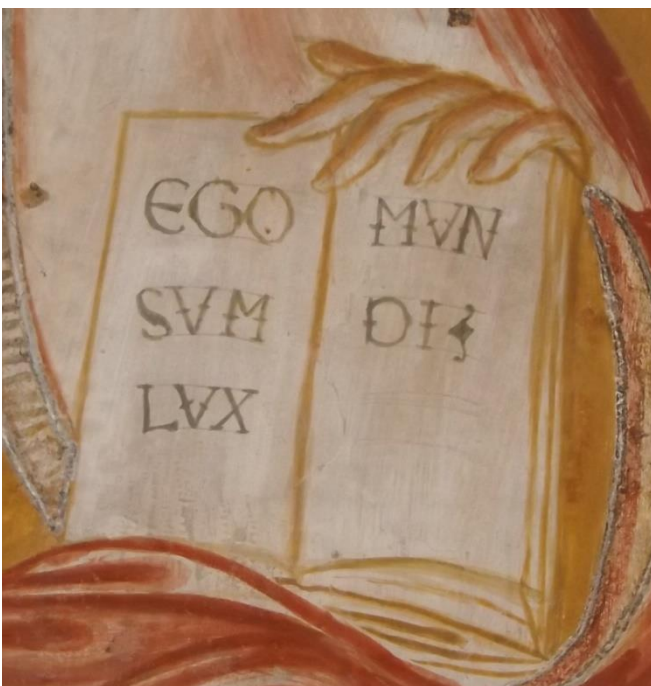 EGO
SVM
LVX
MVN
DI